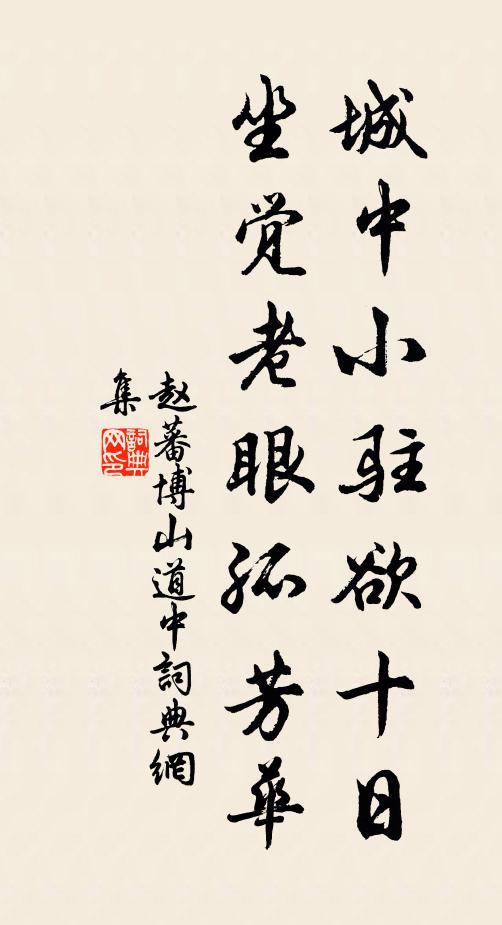 城中小驻欲十日
坐觉老眼孤芳華
赵蕃博山道中詞典網
集
詞典网印